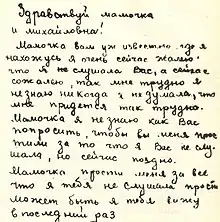 Здравствуй мамочка
и михаиловна!
Мамочка вам уж известно где я
нахожусь я очень сейчас жалею
что я не слушала Вас, а сейчас
сожалею так мне трудно я
незнаю никогда я не думала, что
мне придется так трудно.
Мамочка я не знаю как Вас
попросить, чтобы вы меня прос
тили за то что я Вас не слу
шала, но сейчас поздно.
Мамочка прости меня за все
что я тебя не слушала прости
может быть я тебя вижу
в последний раз